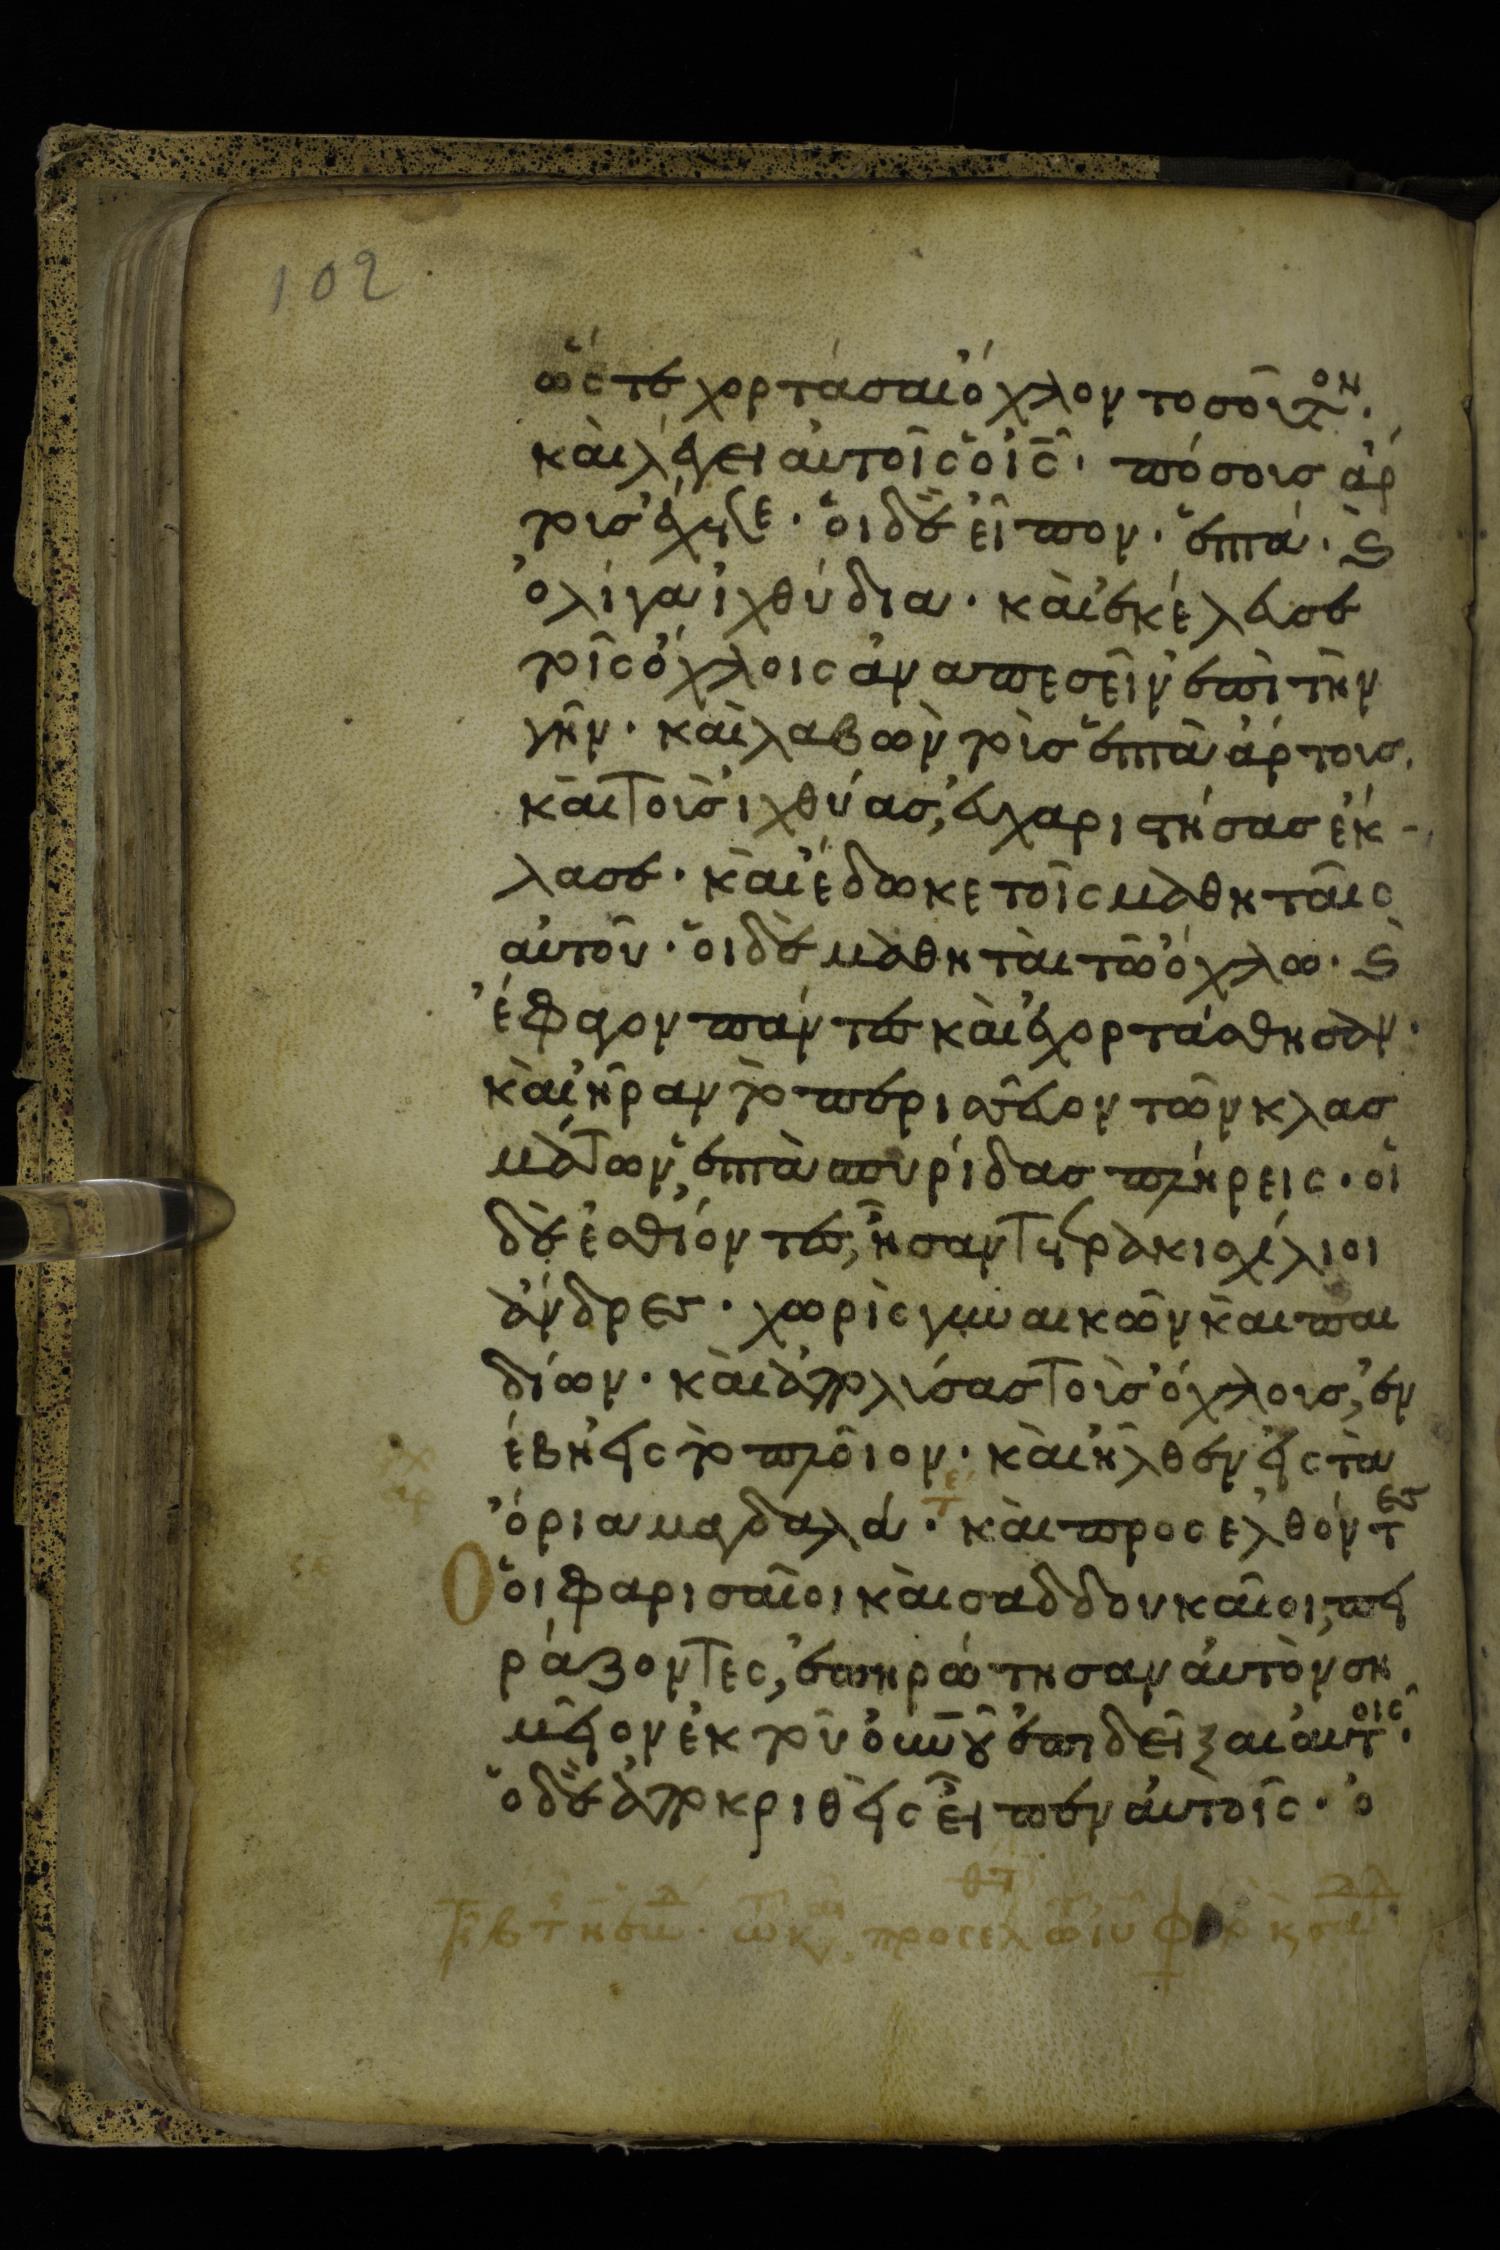 102
ὥστε χορτάσαι ὄχλον τοσοῦτον·
καὶ λέγει αὐτοῖς ὁ ις̅· πόσους ἄρ
τους ἔχετε· οἱ δὲ εἶπον· ἑπτά· ϗ
ὀλίγα ἰχθύδια· καὶ ἐκέλευσε
τοῖς ὄχλοις ἀναπεσεῖν ἐπὶ τὴν
γῆν· καὶ λαβὼν τοὺς ἑπτὰ ἄρτους,
καὶ τοὺς ἰχθύας, εὐχαριστήσας ἔκ-
λασε· καὶ ἔδωκε τοῖς μαθηταῖς
αὐτοῦ· οἱ δὲ μαθηταὶ τῶ ὄχλω· ϗ
ἔφαγον πάντες καὶ ἐχορτάσθησαν·
καὶ ἦραν τὸ περισσεῦον τῶν κλασ
μάτων, ἑπτὰ σπυρίδας πλήρεις· οἱ
δὲ ἐσθίοντες, ἦσαν τετρακισχίλιοι
ἄνδρες· χωρὶς γυναικῶν καὶ παι
δίων· καὶ ἀπολύσας τοὺς ὄχλους, ἐν
έβη εἰς τὸ πλοῖον· καὶ ἦλθεν εἰς τὰ
ὅρια μαγδαλά· καὶ προσελθόντες
οἱ φαρισαῖοι καὶ σαδδουκαῖοι, πει
ράζοντες, ἐπηρώτησαν αὐτὸν ση
μεῖον ἐκ τοῦ οὐνοῦ ἐπιδεῖξαι αὐτοῖς·
ὁ δὲ ἀποκριθεὶς εἶπεν αὐτοῖς· ὀ